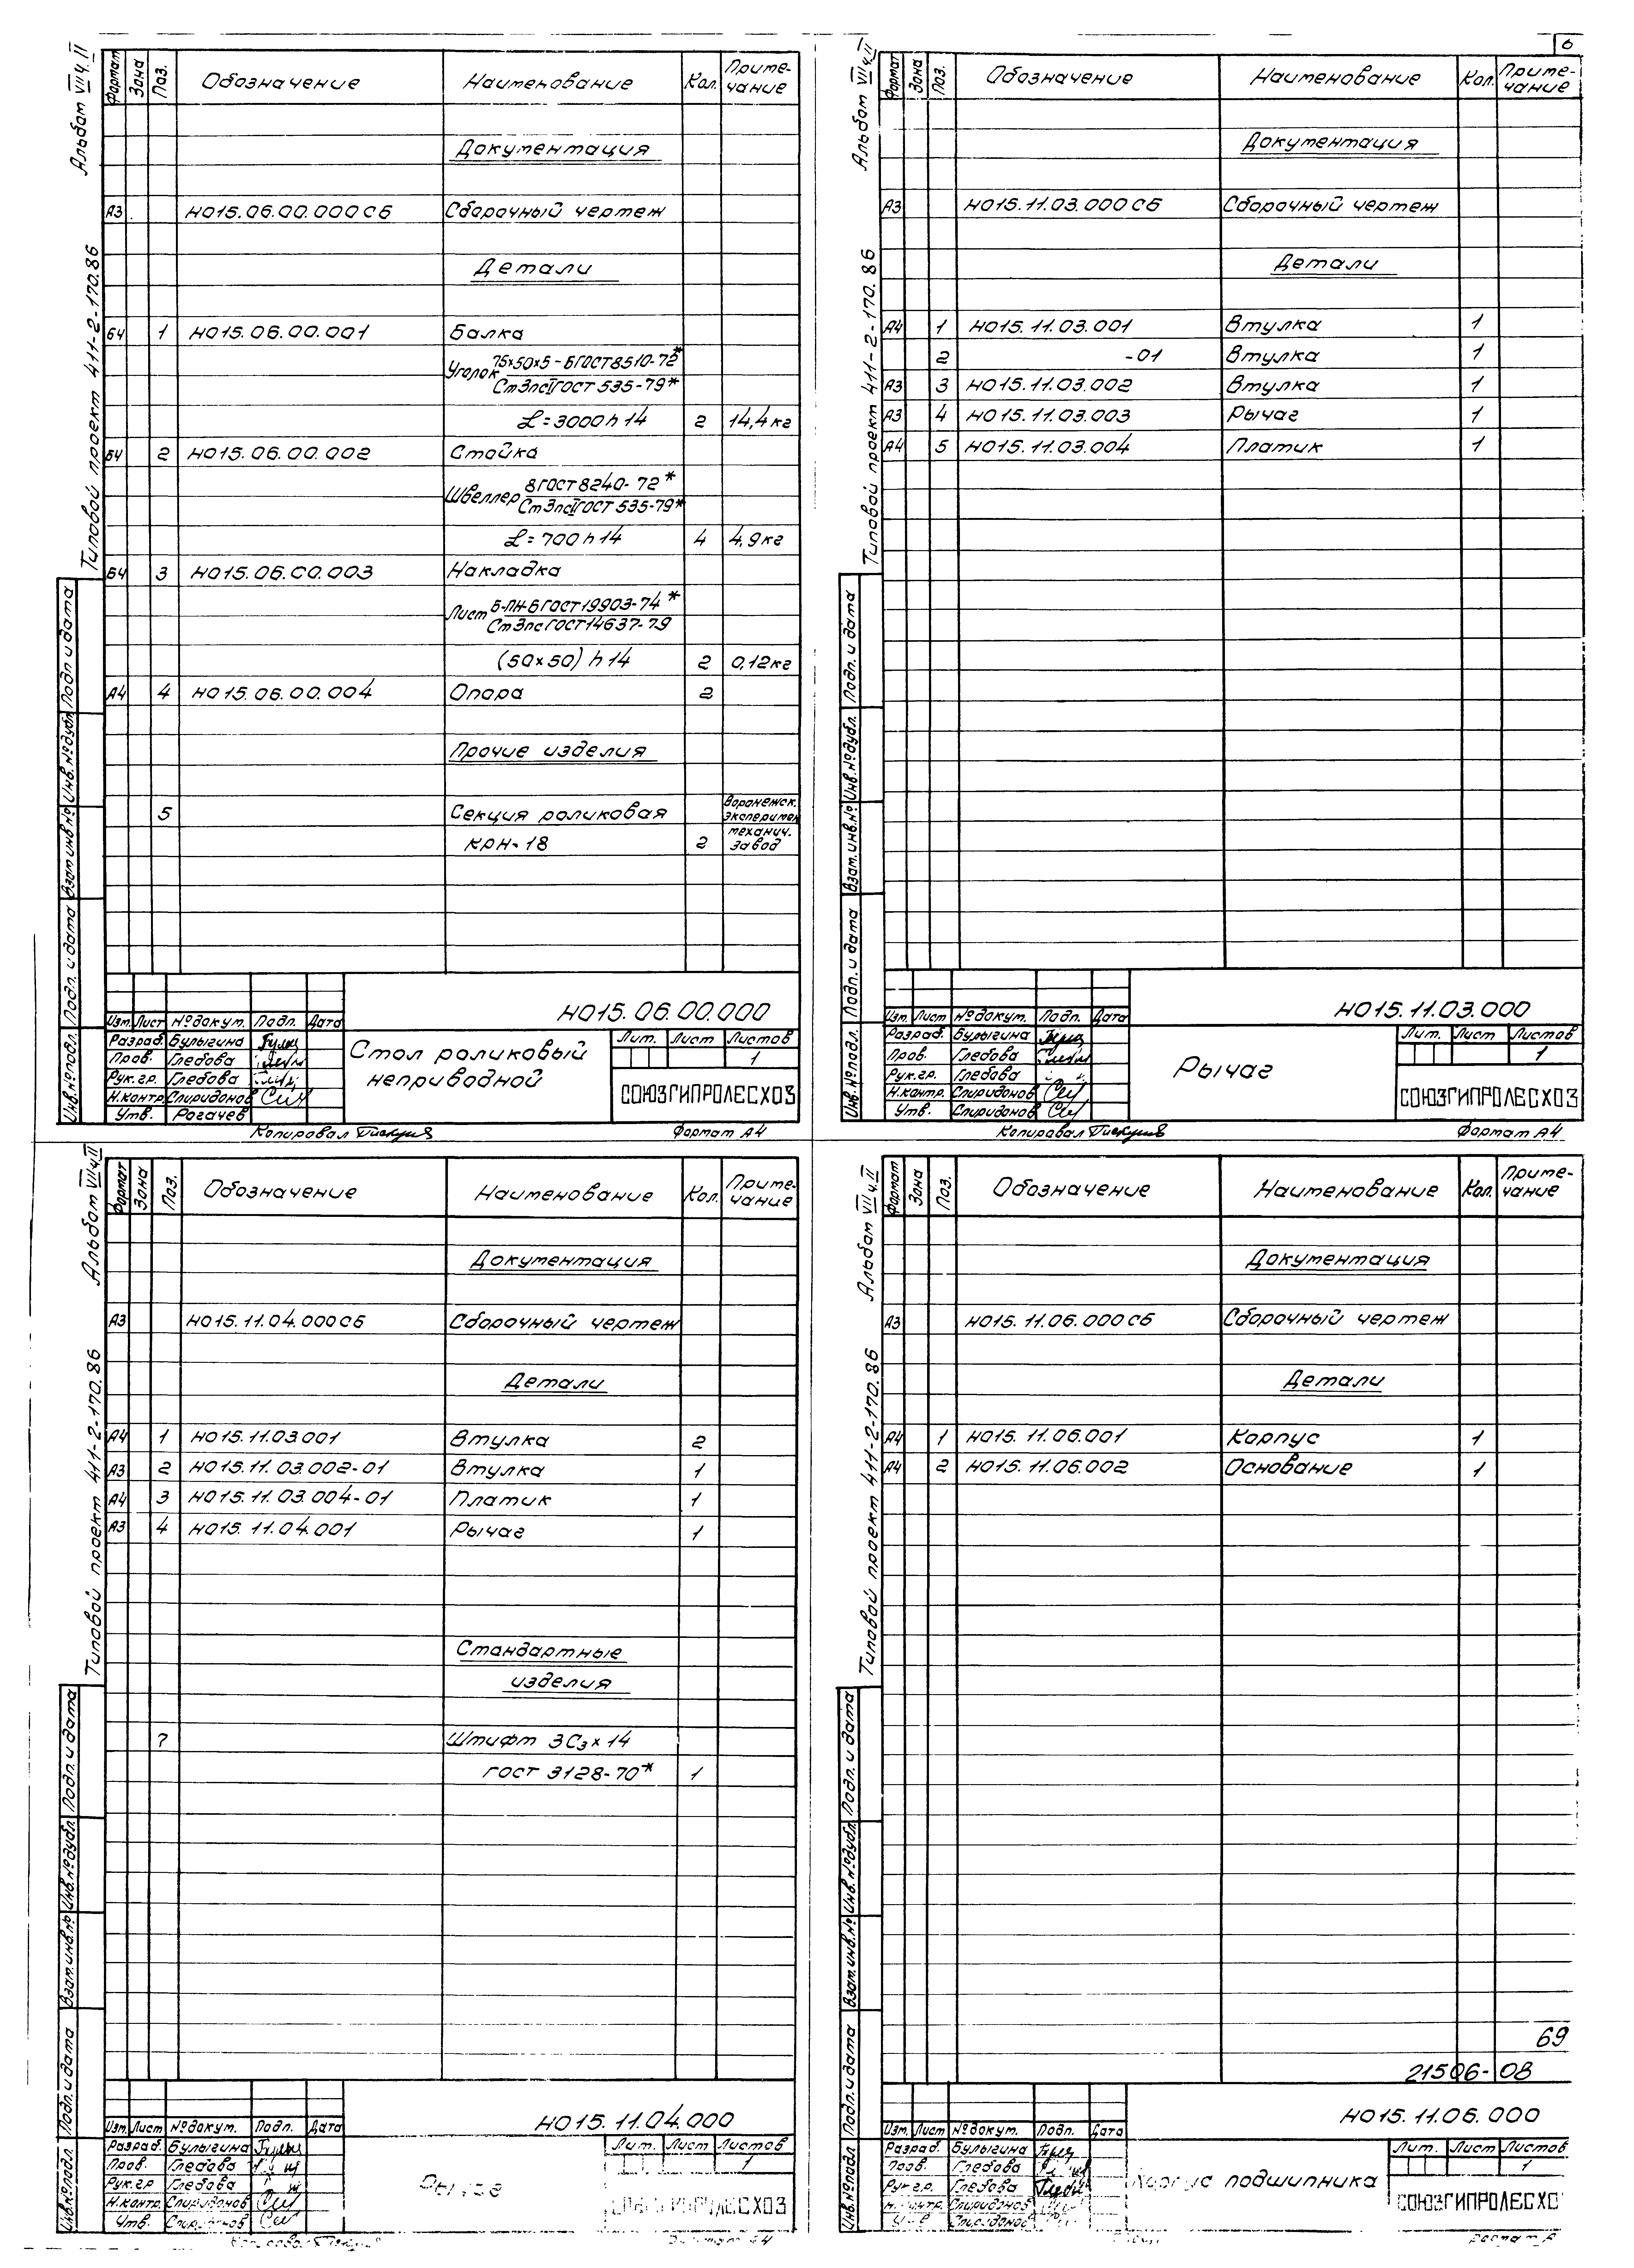 Альбом VII ч.II
Типовой проект 411-2-170.86
Формат Зона Поз. Обозначение Наименование Кол. Приме-
чание
Документация
А3 НО15.06.00.000СБ Сборочный чертеж
Детали
БЧ 1 НО15.06.00.001 Балка
Уголок 75х50х5-Б ГОСТ 8510-72*
Ст3псII ГОСТ 535-79*
L=3000h14 2 14,4кг
БЧ 2 НО15.06.00.002 Стойка
Швеллер 8 ГОСТ 8240-72*
Ст3псII ГОСТ 535-79*
L=700h14 4 4,9кг
БЧ 3 НО15.06.00.003 Накладка
Лист Б-ПН-6 ГОСТ 19903-74*
Ст3пс ГОСТ 14637-79
(50х50)h14 2 0,12кг
А4 4 НО15.06.00.004 Опора 2
Прочие изделия
5 Секция роликовая Воронежск.
эксперимен
КРН-18 2 механич.
завод
Инв.№подл. Подп. и дата Взам.инв.№ Инв.№дубл. Подп. и дата
НО15.06.00.000
Изм. Лист №докум. Подп. Дата
Разраб. Булыгина
Пров. Глебова
Рук.гр. Глебова
Н.контр. Спиридонов
Утв. Рогачев
Стол роликовый
неприводной
Лит. Лист Листов
1
СОЮЗГИПРОЛЕСХОЗ
Копировал Формат А4
6
Альбом VII ч.II
Типовой проект 411-2-170.86
Формат Зона Поз. Обозначение Наименование Кол. Приме-
чание
Документация
А3 НО15.11.03.000СБ Сборочный чертеж
Детали
А4 1 НО15.11.03.001 Втулка 1
2 -01 Втулка 1
А3 3 НО15.11.03.002 Втулка 1
А3 4 НО15.11.03.003 Рычаг 1
А4 5 НО15.11.03.004 Платик 1
Инв.№подл. Подп. и дата Взам.инв.№ Инв.№дубл. Подп. и дата
НО15.11.03.000
Изм. Лист №докум. Подп. Дата
Разраб. Булыгина
Пров. Глебова
Рук.гр. Глебова
Н.контр. Спиридонов
Утв. Спиридонов
Рычаг
Лит. Лист Листов
1
СОЮЗГИПРОЛЕСХОЗ
Копировал Формат А4
Альбом VII ч.II
Типовой проект 411-2-170.86
Формат Зона Поз. Обозначение Наименование Кол. Приме-
чание
Документация
А3 НО15.11.04.000СБ Сборочный чертеж
Детали
А4 1 НО15.11.03.001 Втулка 2
А3 2 НО15.11.03.002-01 Втулка 1
А4 3 НО15.11.03.004-01 Платик 1
А3 4 НО15.11.04.001 Рычаг 1
Стандартные
изделия
7 Штифт 3С₃х14
ГОСТ 3128-70* 1
Инв.№подл. Подп. и дата Взам.инв.№ Инв.№дубл. Подп. и дата
НО15.11.04.000
Изм. Лист №докум. Подп. Дата
Разраб. Булыгина
Пров. Глебова
Рук.гр Глебова
Н.контр. Спиридонов
Утв. Спиридонов
Рычаг
Лит. Лист Листов
1
СОЮЗГИПРОЛЕСХОЗ
Альбом VII ч.II
Типовой проект 411-2-170.86
Формат Зона Поз. Обозначение Наименование Кол. Приме-
чание
Документация
А3 НО15.11.06.000СБ Сборочный чертеж
Детали
А4 1 НО15.11.06.001 Корпус 1
А4 2 НО15.11.06.002 Основание 1
69
21506-08
Инв.№подл Подп. и дата Взам.инв.№ Инв.№дубл. Подп. и дата
НО15.11.06.000
Изм. Лист №докум. Подп. Дата
Разраб. Булыгина
Пров. Глебова
Рук.гр. Глебова
Н.контр. Спиридонов
Утв. Спиридонов
Корпус подшипника
Лит. Лист Листов
1
СОЮЗГИПРОЛЕСХО